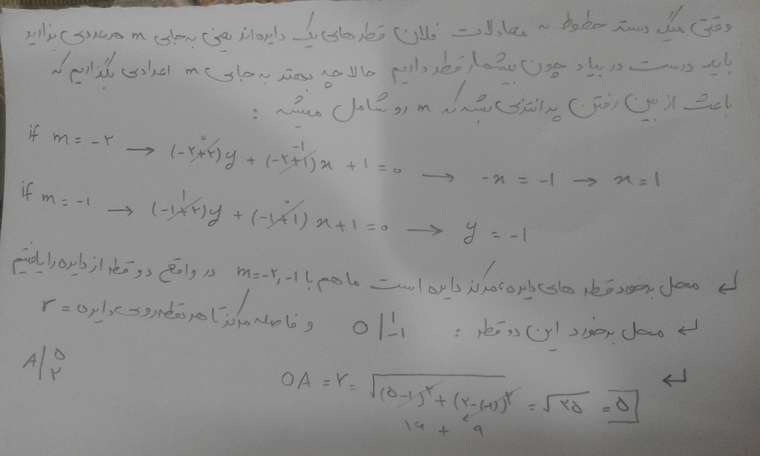 وقتی میگ دسته خطوط به معادلات فلان قطرهای یک دایره اند یعنی به جایی m هر عددی بزارید
باید درست در بیاد چون بیشمار قطر داریم حالا چه بهتر به جای m اعدادی بگذاریم که
باعث از بین رفتن پرانتزی بشه که m رو شامل میشه :
if m = -۲ → (-۲+۲)y + (-۲+۱)x + 1 = 0 → -x = -1 → x = 1
if m = -1 → (-1+۲)y + (-1+1)x + 1 = 0 → y = -1
↵ محل برخورد قطر های دایره، مرکز دایره است ما هم با m=-۲,-1 در واقع دو قطر از دایره را یافتیم
↵ محل برخورد این دو قطر : O | 1 -1 و فاصله مرکز تا هر نقطه روی دایره = r
A | ۵ ۲
↵ OA = r = √(۵-1)^۲ + (۲-(-1))^۲ = √۲۵ = ۵
۱۶ + ۹